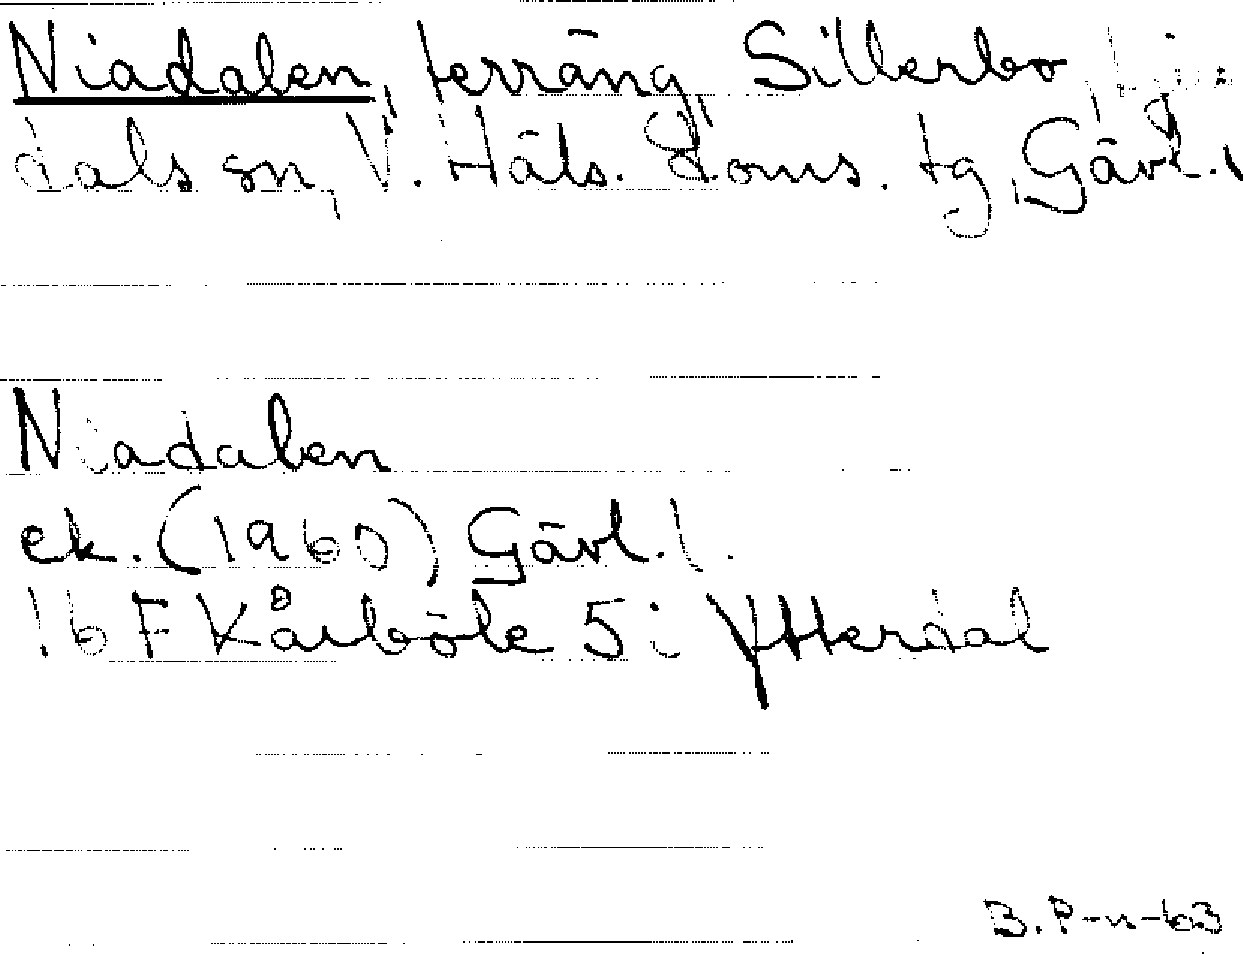 Niadalen, terräng, Sillerbo, Ljus
dals sn, V. Häls. Doms. tg, Gävl. l
Niadalen
ek. (1960) Gävl. l.
16 F Kårböle 5 i Ytterdal
B. P-n-63